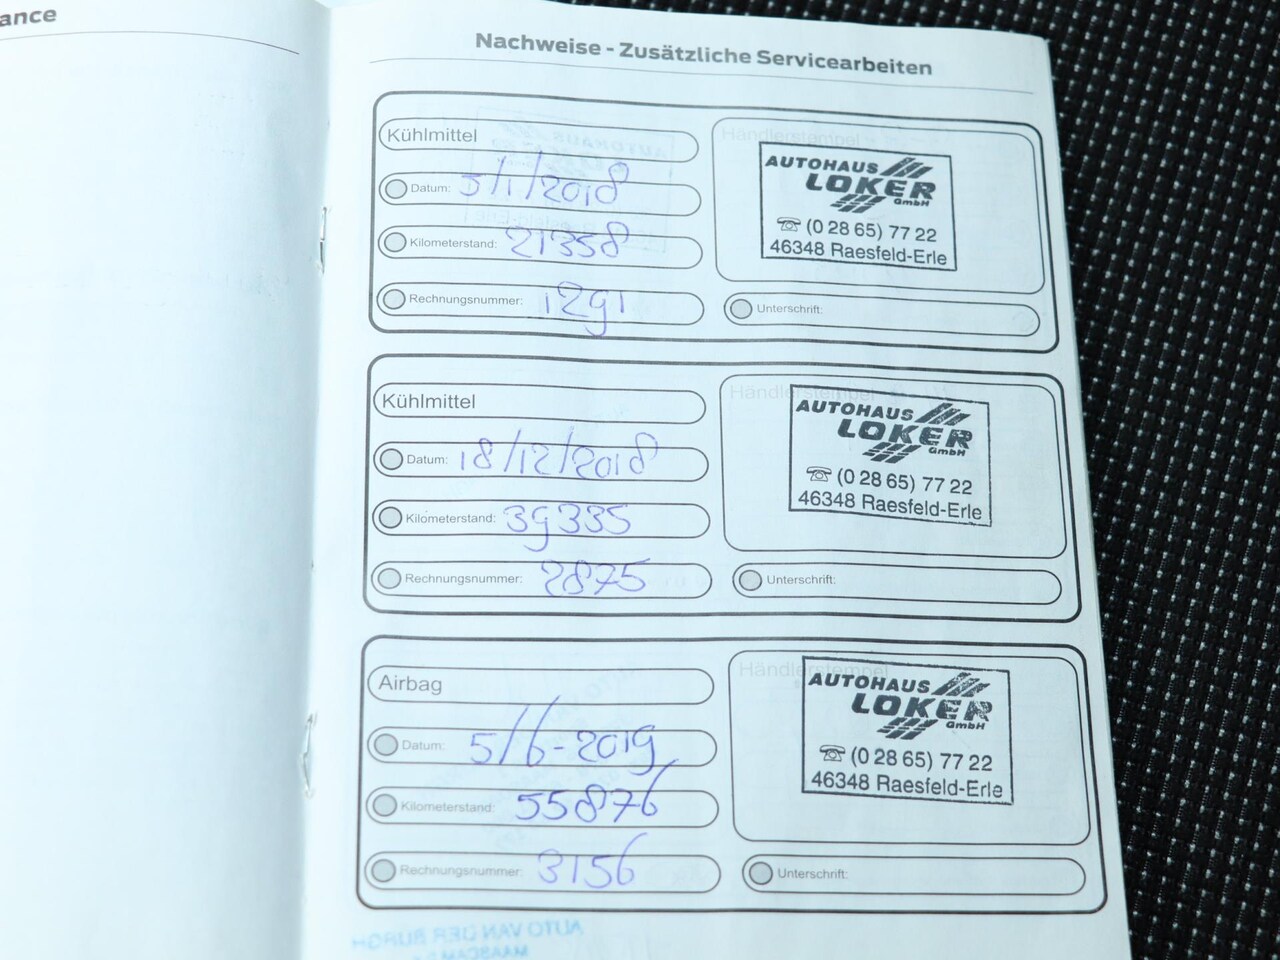 ance
Nachweise - Zusätzliche Servicearbeiten
Kühlmittel
Händlerstempel
Datum: 5/1/2018
Kilometerstand: 21358
Rechnungsnummer: 1291
AUTOHAUS
LOKER
GmbH
☏ (0 28 65) 77 22
46348 Raesfeld-Erle
Unterschrift:
Kühlmittel
Händlerstempel
Datum: 18/12/2018
Kilometerstand: 39335
Rechnungsnummer: 2875
AUTOHAUS
LOKER
GmbH
☏ (0 28 65) 77 22
46348 Raesfeld-Erle
Unterschrift:
Airbag
Händlerstempel
Datum: 5/6-2019
Kilometerstand: 55876
Rechnungsnummer: 3156
AUTOHAUS
LOKER
GmbH
☏ (0 28 65) 77 22
46348 Raesfeld-Erle
Unterschrift:
AUTO VAN DER BURGH